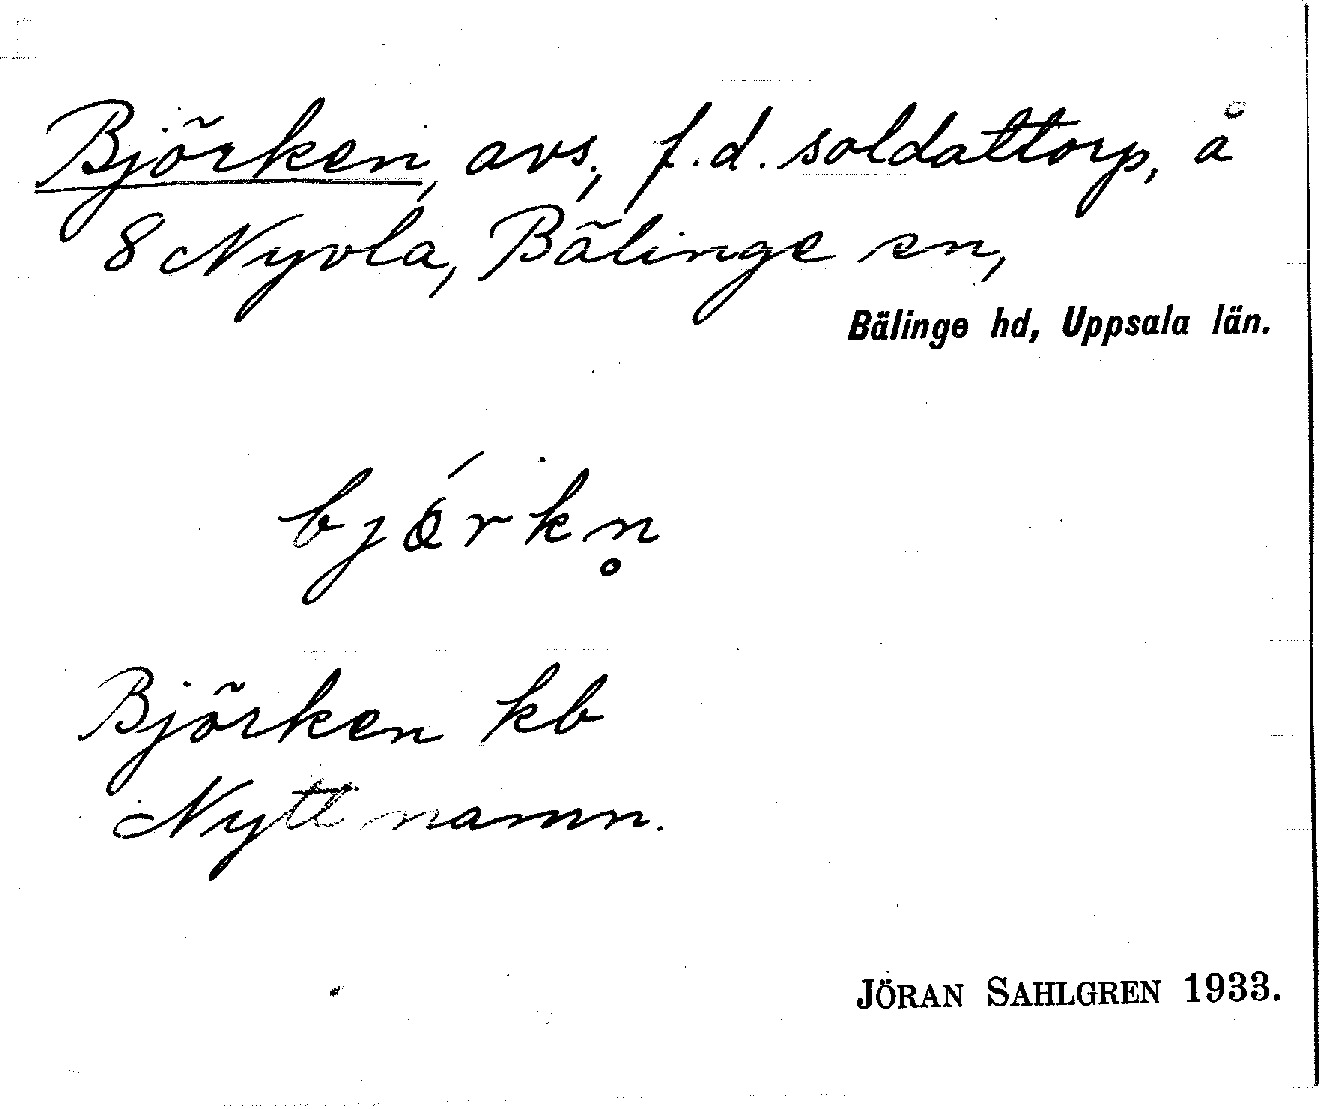 Björken, avs., f.d. soldattorp, å
8 Nyvla, Bälinge sn,
Bälinge hd, Uppsala län.
bjǿrkn̥
Björken kb
Nytt namn.
JÖRAN SAHLGREN 1933.